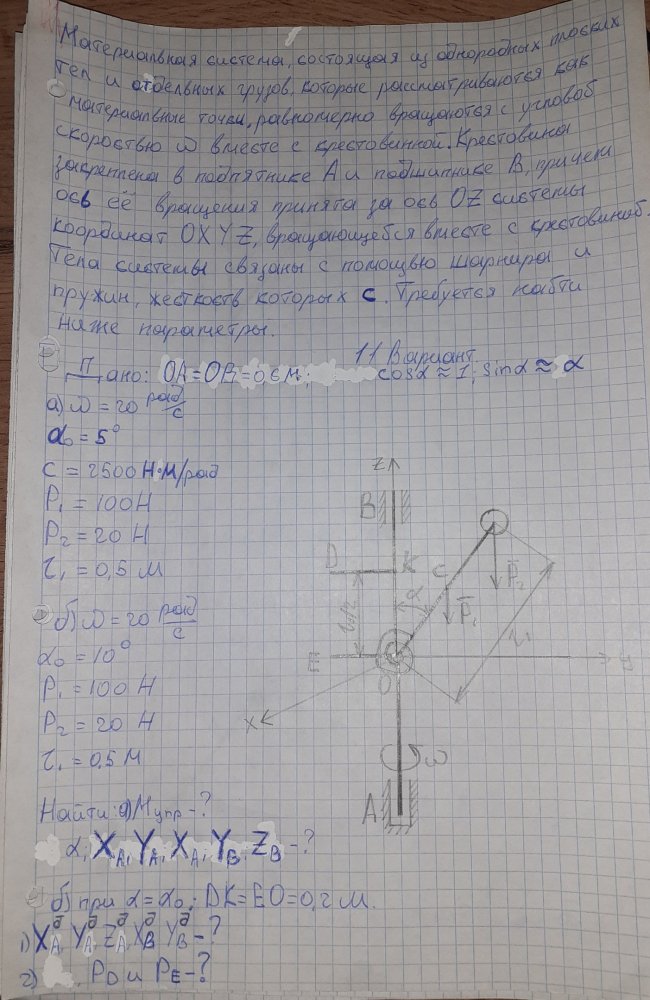 Материальная система, состоящая из однородных плоских
тел и отдельных грузов, которые рассматриваются как
материальные точки, равномерно вращаются с угловой
скоростью ω вместе с крестовиной. Крестовина
закреплена в подпятнике A и подшипнике B, причем
ось её вращения принята за ось OZ системы
координат OXYZ, вращающейся вместе с крестовиной.
Тела системы связаны с помощью шарнира и
пружин, жесткость которых c. Требуется найти
ниже параметры.
11 Вариант
Дано: OA=OB=0,6м; cosα ≈ 1, sinα ≈ α
а) ω = 20 рад/с
α₀ = 5°
c = 2500 Н·м/рад
P₁ = 100 Н
P₂ = 20 Н
τ₁ = 0,5 м
б) ω = 20 рад/с
α₀ = 10°
P₁ = 100 Н
P₂ = 20 Н
τ₁ = 0.5 м
Z
B
D
K
C
P̅₂
α
P̅₁
τ₁
E
O
y
x
ω
A
Найти: а) Mупр - ?
α, XA, YA, XA, YB, ZB - ?
б) при α = α₀; DK = EO = 0,2 м.
1) XAᵟ YAᵟ ZAᵟ XBᵟ YBᵟ - ?
2) PD и PE - ?